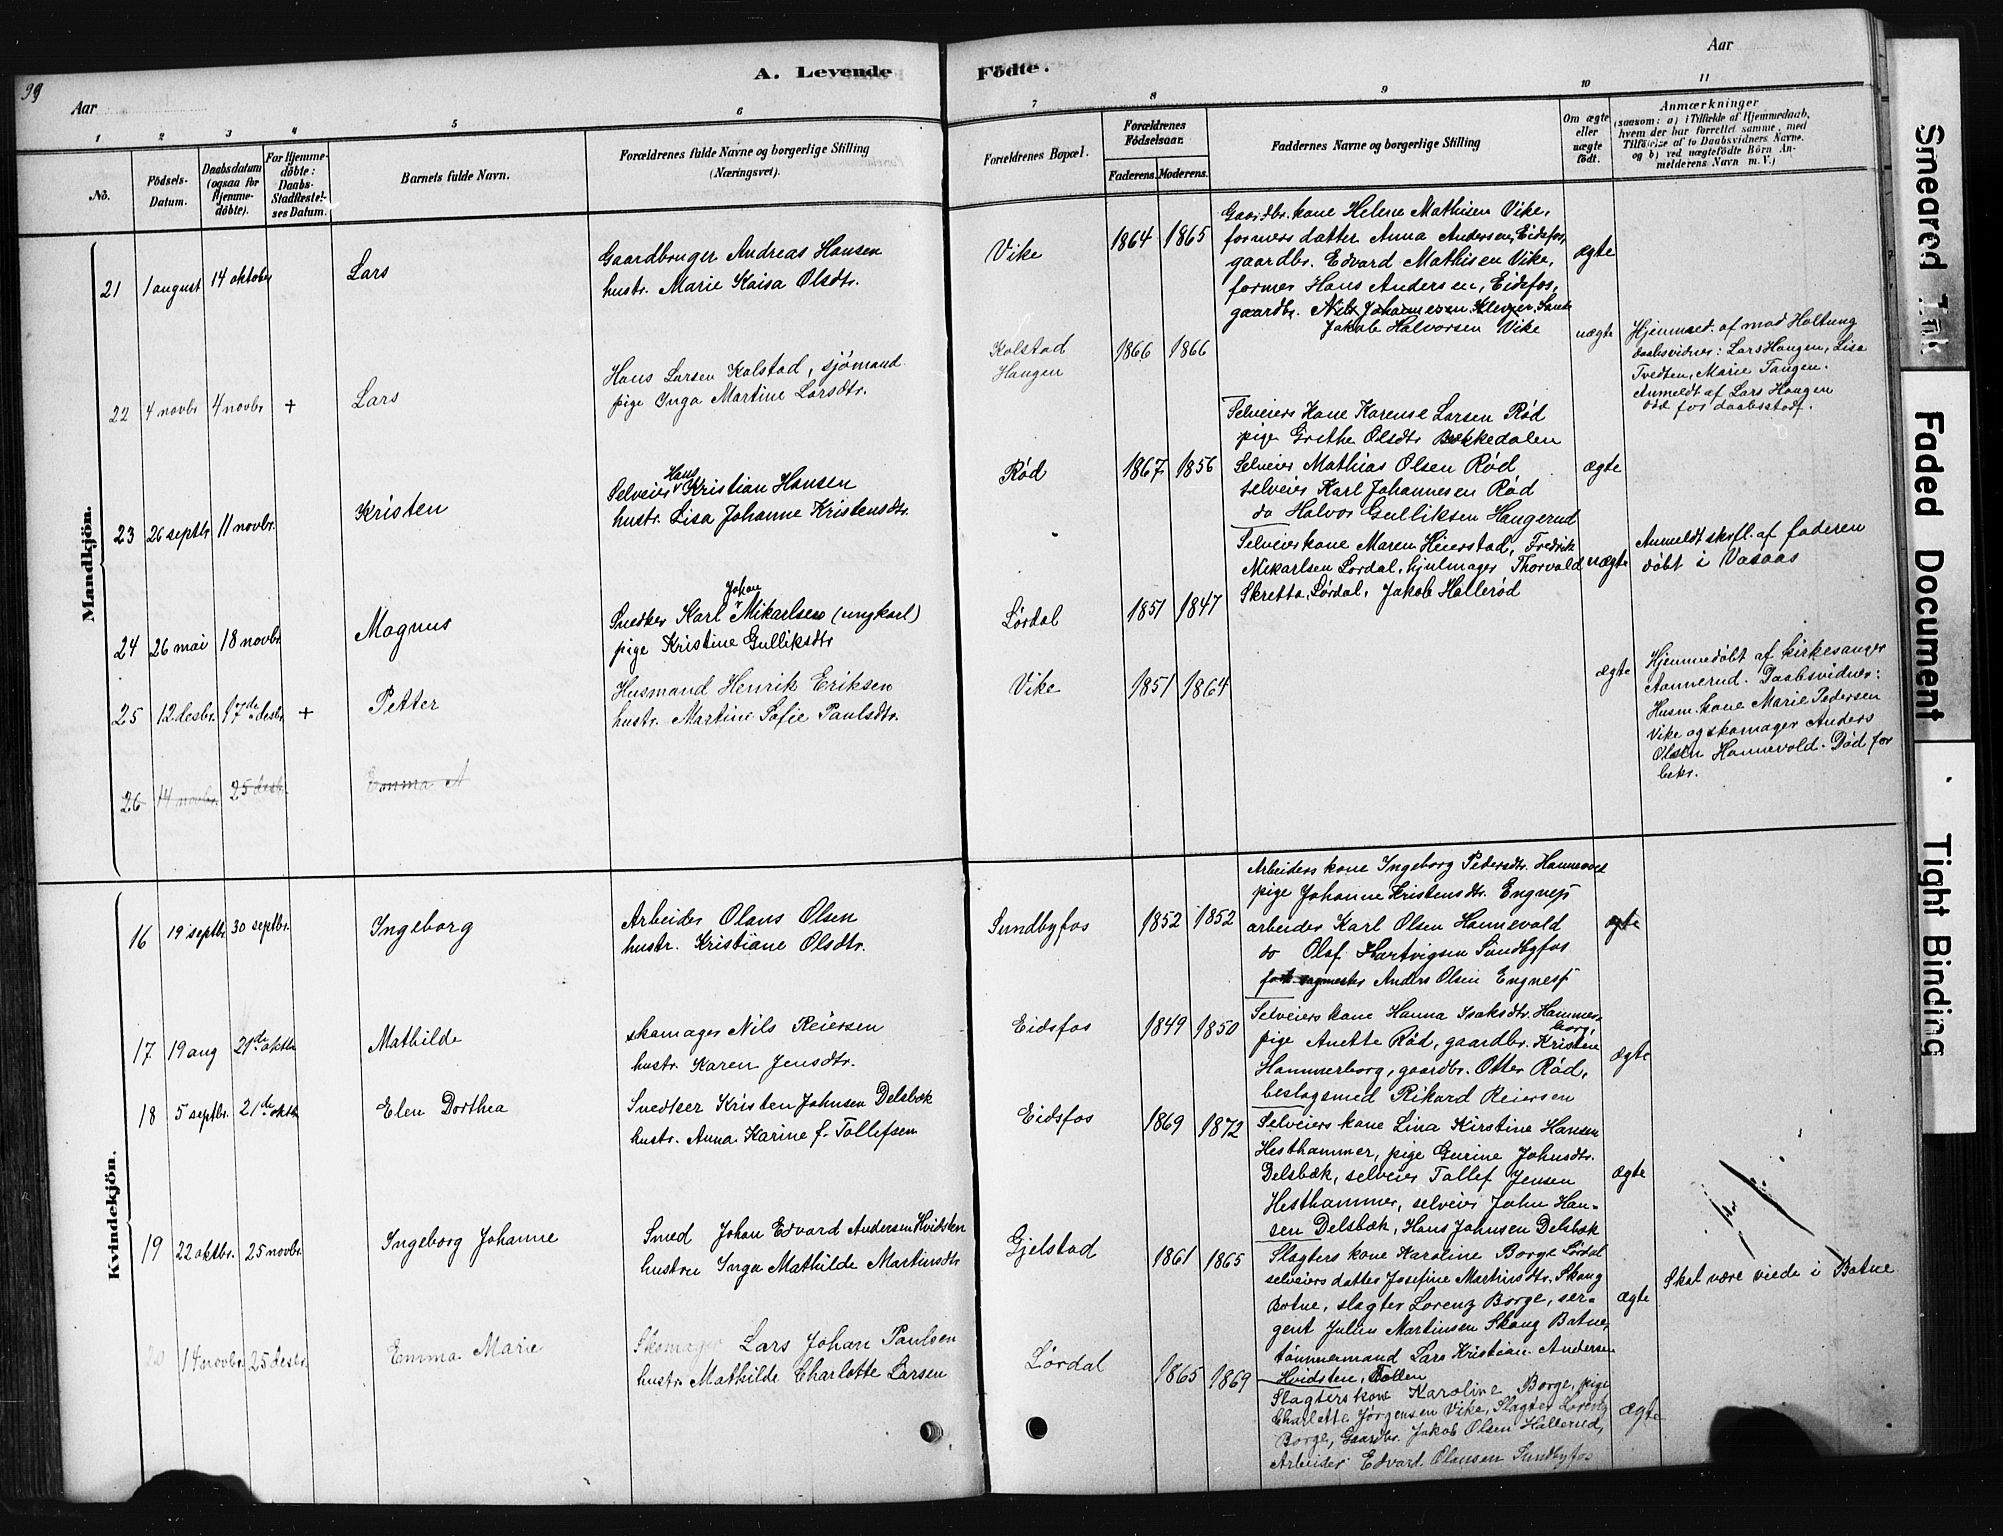 99
Aar
A. Levende
Födte.
Aar
1 2 3 4 5 6 7 8 9 10 11
No.
Födsels-Datum.
Daabsdatum (ogsaa for Hjemme-döbte).
For Hjemme-döbte: Daabs-Stadfæstel-ses Datum.
Barnets fulde Navn.
Forældrenes fulde Navne og borgerlige Stilling
(Næringsvei).
Forældrenes Bopæl.
Forældrenes Födselsaar.
Faderens. Moderens.
Faddernes Navne og borgerlige Stilling
Om ægte eller uægte födt.
Anmærkninger
(saasom: a) i Tilfælde af Hjemmedaab,
hvem der har forrettet samme, med
Tilföielse af to Daabsvidners Navne,
og b) ved uægtefödte Börn An-
melderens Navn m. V.)
Mandkjön.
21 1 august 14 oktober Lars
Gaardbruger Andreas Hansen
hustr. Marie Kaisa Olsdtr.
Vike 1864 1865
Gaardbr. kone Helene Mathisen Vike,
formers datter Anna Andersen, Eidsfos,
gaardbr. Edvard Mathisen Vike,
former Hans Andersen, Eidsfos,
gaardbr. Nils Johannesen Klevjer Sande
Jakob Halvorsen Vike
ægte
22 4 novbr 4 novbr + Lars
Hans Larsen Kolstad, sjömand
pige Inga Martine Larsdtr.
Kolstad
Haugen
1866 1866
uægte
Hjemmed. af mad Holtung
daabsvidner: Lars Haugen, Lisa
Tvedten, Marie Tangen.
Anmeldt af Lars Haugen
död for daabsstadf.
23 26 septbr 11 novbr. Kristen
Selveier Hans Kristian Hansen
hustr. Lisa Johanne Kristensdtr.
Röd 1867 1856
Selveiers Kone Karense Larsen Röd
pige Grethe Olsdtr Bækkedalen
Selveier Mathias Olsen Röd
selveier Karl Johannesen Röd
do Halvor Gulliksen Haugerud
ægte
24 26 mai 18 novbr. Magnus
Snedker Karl Johan Mikarlsen (ungkarl)
pige Kristine Gulliksdtr
Lördal 1851 1847
Selveierkone Maren Heierstad, Fredrik
Mikarlsen Lördal, hjulmager Thorvald
Skretta, Lördal, Jakob Halleröd
uægte
Anmeldt skrftl. af faderen
döbt i Vasaas
25 12 desbr. 17de desbr + Petter
Husmand Henrik Eriksen
hustr. Martine Sofie Paulsdtr.
Vike 1851 1864
ægte
Hjemmedöbt af kirkesanger
Aannerud. Daabsvidner:
Husm. kone Marie Pedersen
Vike og skomager Anders
Olsen Hannevold. Död for
bekr.
26 14 novbr. 25 desb. Emma A
Kvindekjön.
16 19 septbr 30 septbr. Ingeborg
Arbeider Olaus Olsen
hustr. Kristiane Olsdtr.
Sundbyfos 1852 1852
Arbeiders kone Ingeborg Pedersdtr. Hannevol
pige Johanne Kristensdtr. Engnes,
arbeider Karl Olsen Hannevold
do Olaf Hartvigsen Sundbyfos
Anders Olsen Engnes,
ægte
17 19 aug 21de oktbr Mathilde
skomager Nils Reiersen
hustr. Karen Jensdtr.
Eidsfos 1849 1850
Selveiers kone Hanna Isaksdtr. Hammer-
borg,
pige Anette Röd, gaardbr. Kristen
Hammerborg, gaardbr. Otter Röd,
beslagsmed Rikard Reiersen
ægte
18 5 septbr. 21de oktb Elen Dorthea
Snedker Kristen Johnsen Delsbæk
hustr. Anna Karine f. Tollefsen
Eidsfos 1869 1872
Selveiers kone Lina Kirstine Hansen
Hesthammer, pige Gurine Johnsdtr.
Delsbæk, selveier Tollef Jensen
Hesthammer, selveier John Han-
sen Delsbæk, Hans Johnsen Delsbæk
ægte
19 22 oktbr. 25 novbr Ingeborg Johanne
Smed Johan Edvard Andersen Hvidsten
hustru Inga Mathilde Martinsdtr
Gjelstad 1861 1865
Slagters kone Karoline Borge Lördal
selveiers datter Josefine Martinsdtr. Skaug
Botne, slagter Lorenz Borge, ser-
gent Julius Martinsen Skaug Botne,
tömmermand Lars Kristian Andersen
Hvidsten, Bollen
ægte
Skal være viede i Botne
20 14 novbr. 25 desbr. Emma Marie
Skomager Lars Johan Paulsen
hustr. Mathilde Charlotte Larsen
Lördal 1865 1869
Slagters kone Karoline Borge, pige
Charlotte Jörgensen Vike, Slagter Lorenz
Borge, Gaardbr. Jakob Olsen Hallerud,
Arbeider Edvard Olausen Sundbyfos
ægte
Smeared Ink
Faded Document
Tight Binding